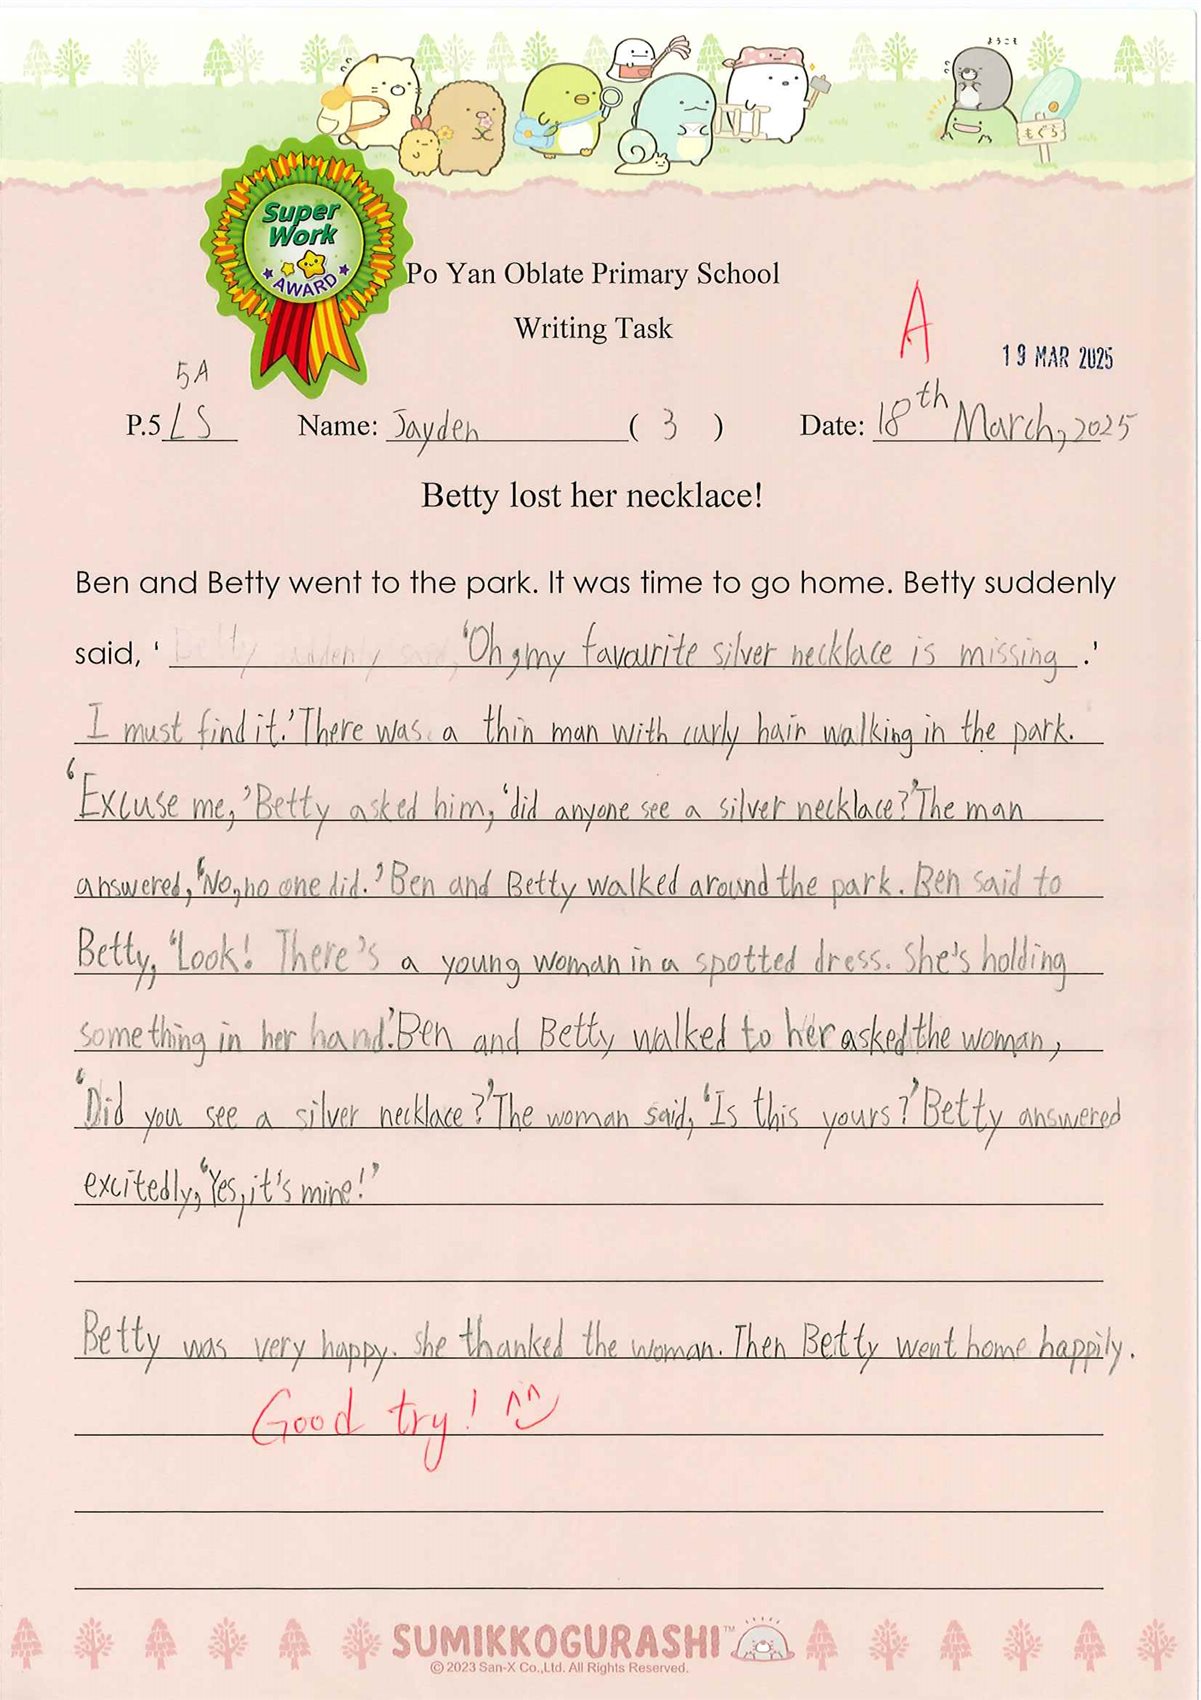 ようこそ
もぐら
Super
Work
AWARD
Po Yan Oblate Primary School
Writing Task
A
19 MAR 2025
5A
P.5 LS Name: Jayden ( 3 ) Date: 18th March, 2025
Betty lost her necklace!
Ben and Betty went to the park. It was time to go home. Betty suddenly
said, ‘ ‘Oh, my favourite silver necklace is missing .’
I must find it.’ There was a thin man with curly hair walking in the park.
‘Excuse me,’ Betty asked him, ‘did anyone see a silver necklace?’ The man
answered, ‘No, no one did.’ Ben and Betty walked around the park. Ben said to
Betty, ‘Look! There's a young woman in a spotted dress. She's holding
something in her hand.’ Ben and Betty walked to her asked the woman,
‘Did you see a silver necklace?’ The woman said, ‘Is this yours?’ Betty answered
excitedly, ‘Yes, it's mine!’
Betty was very happy. She thanked the woman. Then Betty went home happily.
Good try!
SUMIKKOGURASHI™
© 2023 San-X Co.,Ltd. All Rights Reserved.